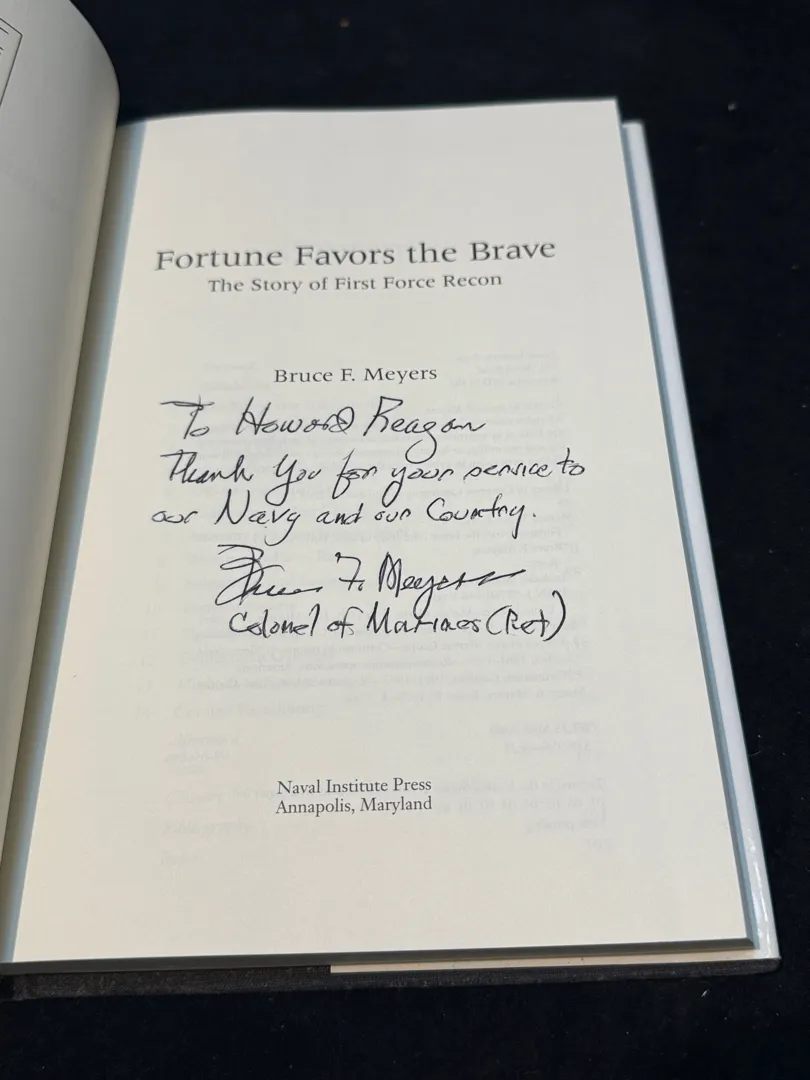 Fortune Favors the Brave
The Story of First Force Recon
Bruce F. Meyers
To Howard Reagan
Thank You for your service to
our Navy and our Country.
Bruce F. Meyers
Colonel of Marines (Ret)
Naval Institute Press
Annapolis, Maryland